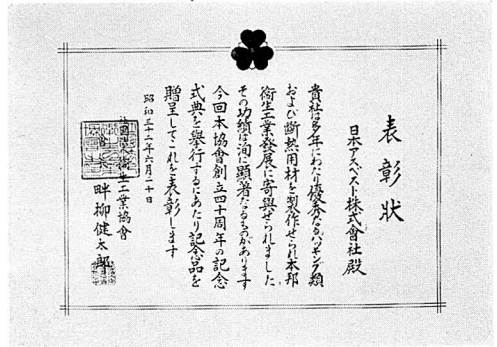 表彰狀
日本アスベスト株式會社殿
貴社は多年にわたり優秀なるパッキング類
および断熱用材を製作せられ本邦
衛生工業発展に寄與せられました
その功績は洵に顕著なるものがあります
今回本協會創立四十周年の記念
式典を舉行するにあたり記念品を
贈呈してこれを表彰します
昭和三十二年六月二十日
衛生工業協會
畔柳健太郎